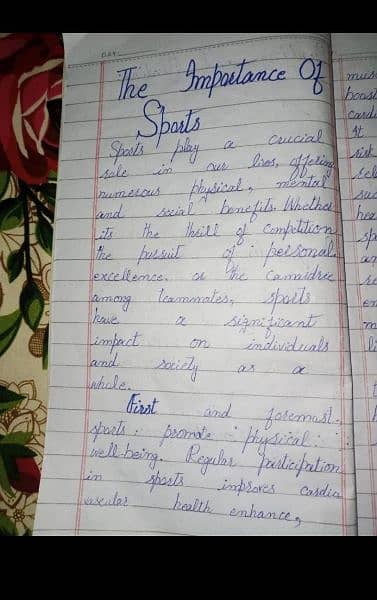 DAY
The Importance Of
Sports
Sports play a crucial
role in our lives, offering
numerous physical, mental
and social benefits. Whether
its the thrill of competition
the pursuit of personal
excellence. or the Camridrie
among teammates, sports
have a significant
impact on individuals
and society as a
whole.
First and foremost.
sports promote physical
well-being. Regular participation
in sports improves cardio
vascular health enhance,